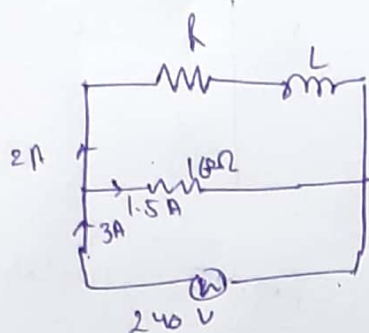 R
L
2A
160Ω
1.5A
3A
240 V